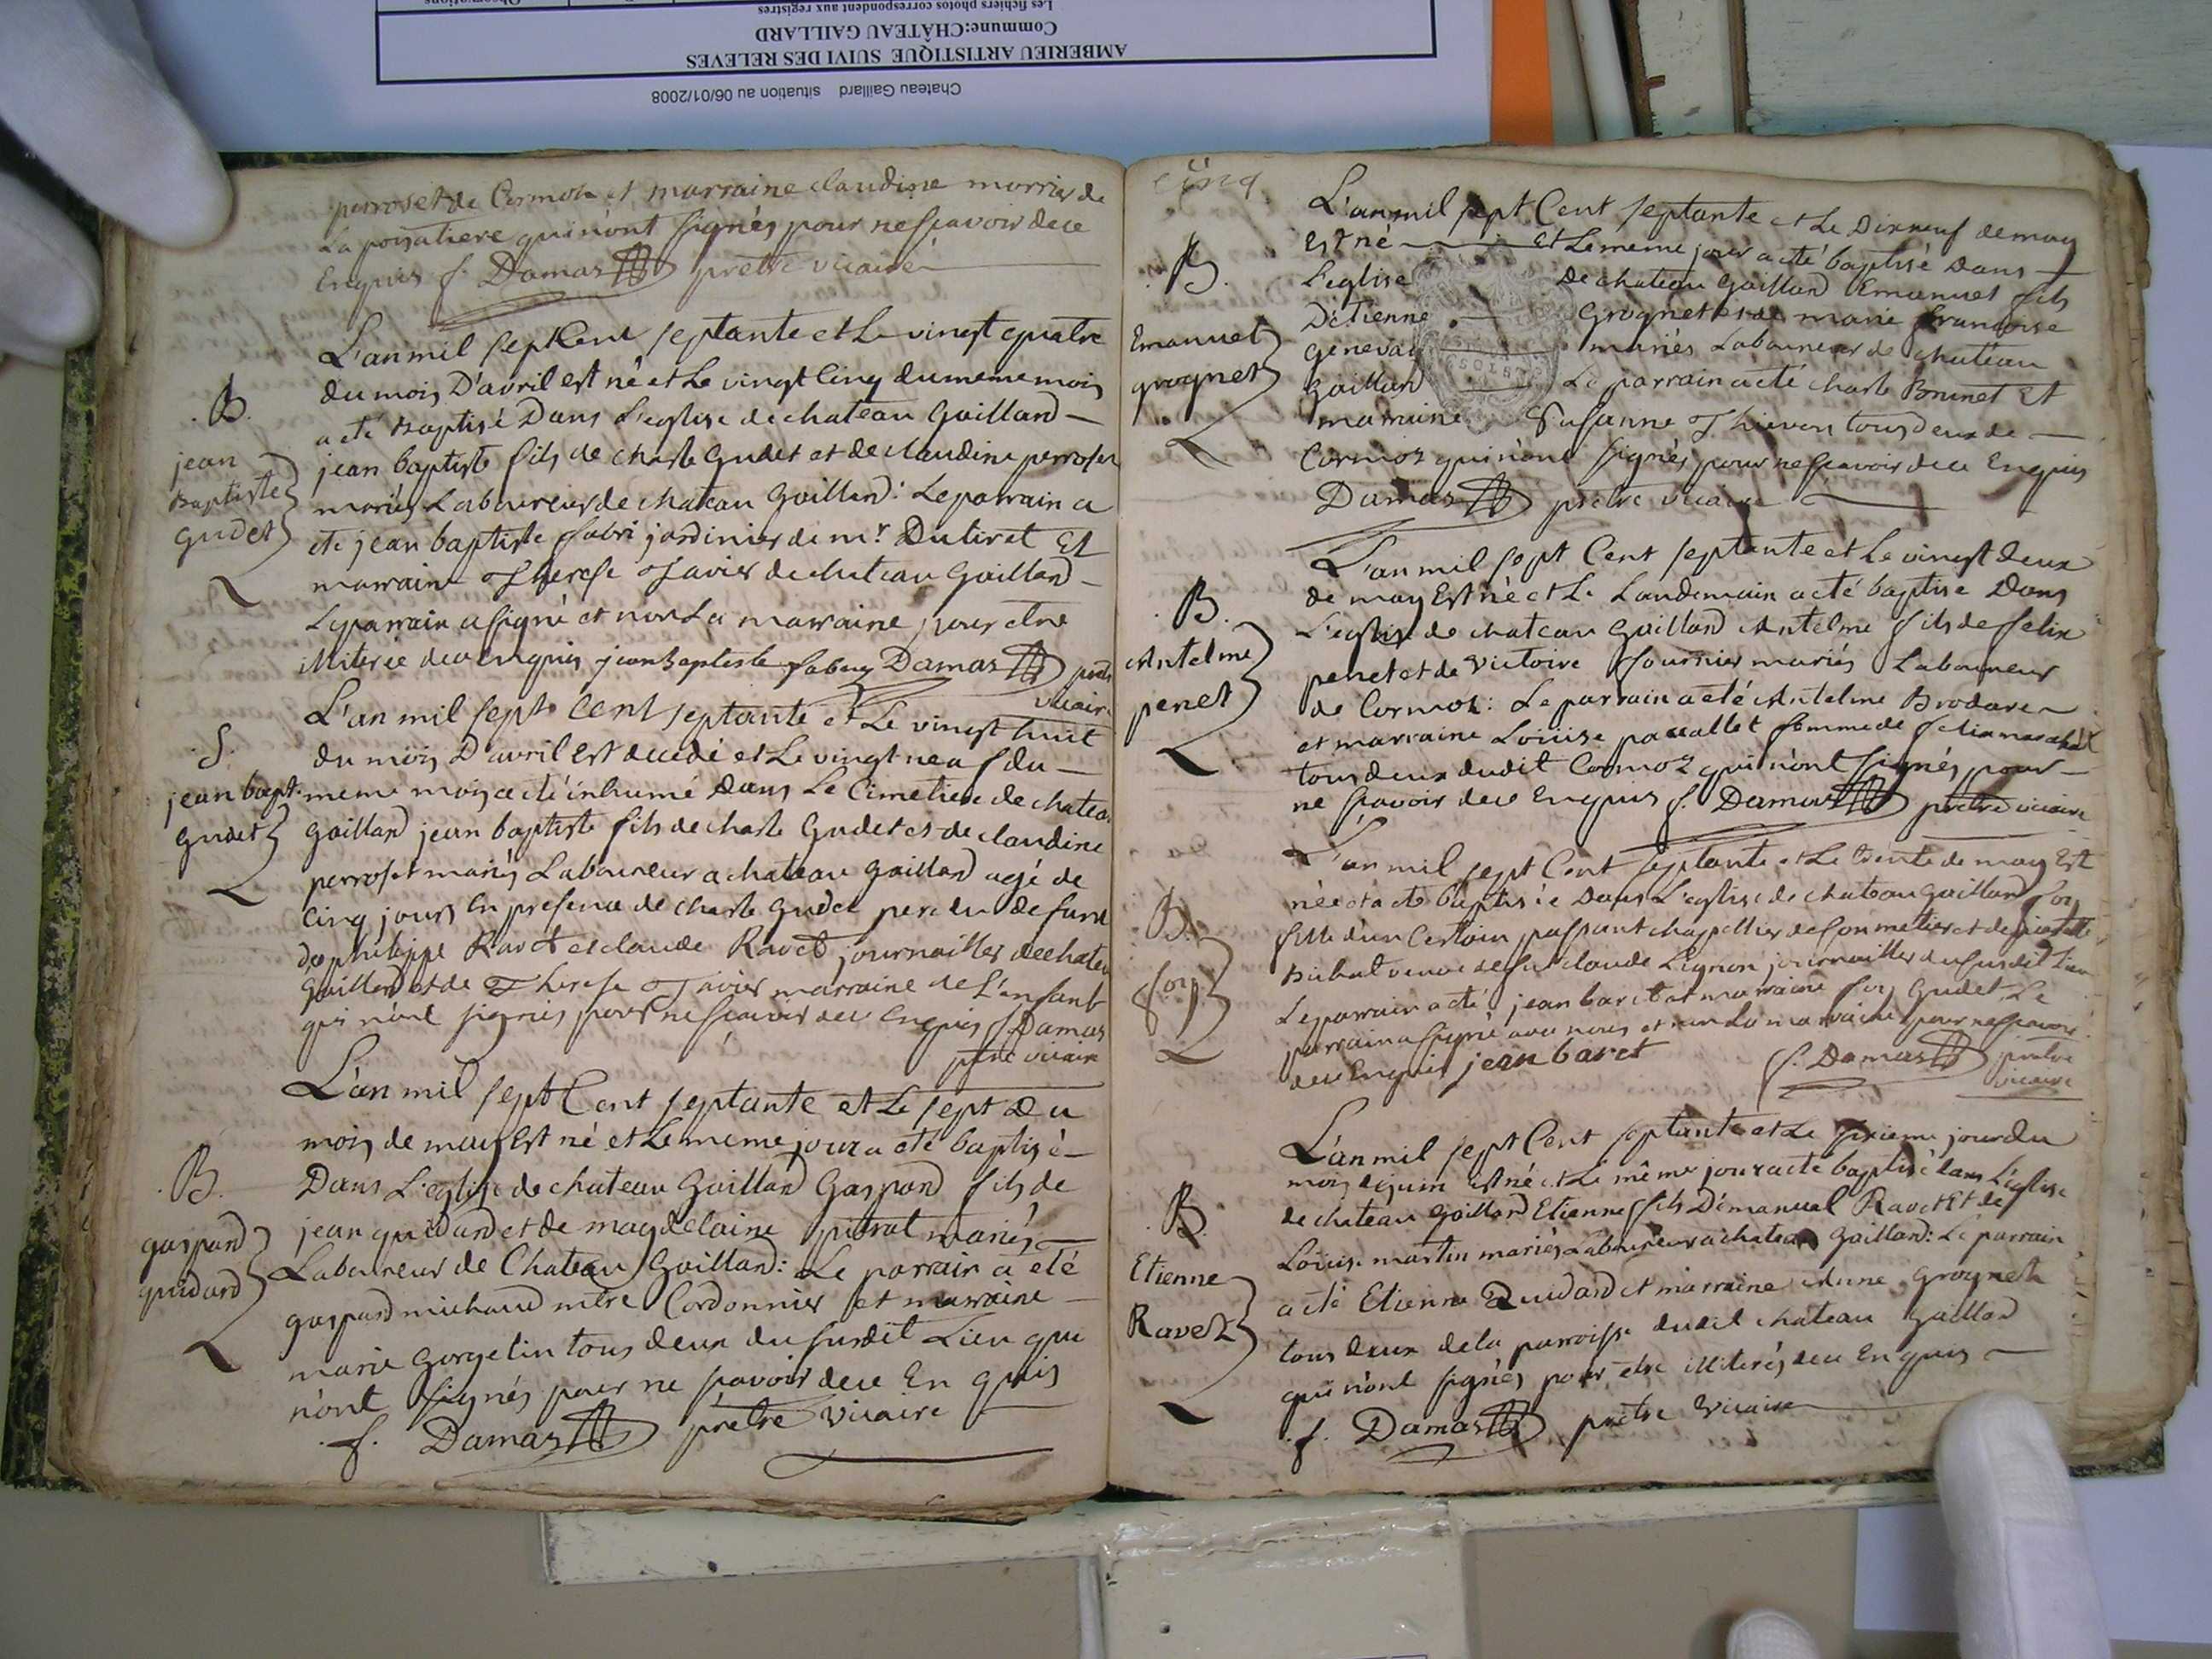 Chateau Gaillard situation au 06/01/2008
AMBERIEU ARTISTIQUE SUIVI DES RELEVES
Commune:CHÂTEAU GAILLARD
Les fichiers photos correspondent aux registres
Observations
perroset de Cormoz et marraine claudine morrier de
La poisatiere qui n'ont signés pour ne sçavoir de ce
Enquis f. Damas prêtre vicaire
B.
jean
Baptiste
gudet
L'an mil sept Cent septante et Le vingt quatre
du mois D'avril est né et Le vingt Cinq du meme mois
a eté Baptisé Dans L'eglise de chateau Gaillard
jean baptiste fils de charle Gudet et de claudine perroset
mariés Laboureurs de chateau Gaillard: Le parrain a
eté jean baptiste fabri jardinier de mr. Dutiret Et
marraine Therese Tavier de chateau Gaillard
Le parrain a signé et non La marraine pour etre
illiterée de ce enquis jean baptiste fabry Damas prêtre
vicaire
S.
jean bapt.
gudet
L'an mil sept Cent septante et Le vingt huit
du mois D'avril est decedé et Le vingt neuf du
meme mois a eté inhumé Dans Le Cimetiere de chateau
Gaillard jean baptiste fils de charle Gudet et de claudine
perroset mariés Laboureur a chateau gaillard agé de
Cinq jours En presence de charle Gudet pere du defunt
de philippe Ravet et claude Ravet journailler de chateau
Gaillard et de Therese Tavier marraine de L'enfant
qui n'ont signés pour ne sçavoir de ce enquis f. Damas
prêtre vicaire
B.
gaspard
guidard
L'an mil sept Cent septante et Le sept du
mois de may Est né et Le meme jour a eté baptisé
Dans L'eglise de chateau Gaillard Gaspard fils de
jean guidard et de magdelaine putrat mariés
Laboureur de Chateau Gaillard: Le parrain a eté
gaspard michaud mtre Cordonnier et marraine
marie Gorgelin tous deux du susdit Lieu qui
n'ont signés pour ne savoir de ce En quis
f. Damas prêtre vicaire
cinq
B.
Emanuel
grognet
L'an mil sept Cent septante et Le Dixneuf de may
Est né Et Le meme jour a eté baptisé Dans
L'eglise De chateau Gaillard Emanuel fils
D'etienne Grognet et de marie francoise
Genevai mariés Laboureur de chateau
Gaillard Le parrain a eté charle Boninet Et
marraine Susanne Thieven tous deux de
Cormoz qui n'ont signés pour ne sçavoir de ce Enquis
Damas prêtre vicaire
B.
Antelme
penet
L'an mil sept Cent septante et Le vingt deux
de may Est né et Le Landemain a eté baptisé Dans
L'eglise de chateau Gaillard Antelme fils de felix
penet et de Victoire fournier mariés Laboureur
de Cormoz: Le parrain a eté Antelme Brodaren
et marraine Louise pavallet femme de felix marechal
tous deux dudit Cormoz qui n'ont signés pour
ne sçavoir de ce Enquis f. Damas prêtre vicaire
B.
foy
L'an mil sept Cent septante et Le trente de may Est
née et a eté baptisée Dans L'eglise de chateau Gaillard foy
fille d'un Certain passant chapellier de son metier et de pierrette
Buhat veuve de fut claude Lignon journailler du susdit Lieu
Le parrain a eté jean baret et marraine foy Gudet Le
parrain a signé avec nous et non La marraine pour ne sçavoir
de ce Enquis jean baret f. Damas prêtre
vicaire
B.
Etienne
Ravet
L'an mil sept Cent septante et Le sixieme jour du
mois de juin est né et Le même jour a eté baptisé dans L'eglise
de chateau Gaillard Etienne fils D'emanuel Ravet Et de
Louise martin mariés Laboureur a chateau Gaillard: Le parrain
a eté Etienne Quidard et marraine Anne grognet
tous deux de la parroisse dudit chateau Gaillard
qui n'ont signés pour etre illiterés de ce Enquis
f. Damas prêtre vicaire